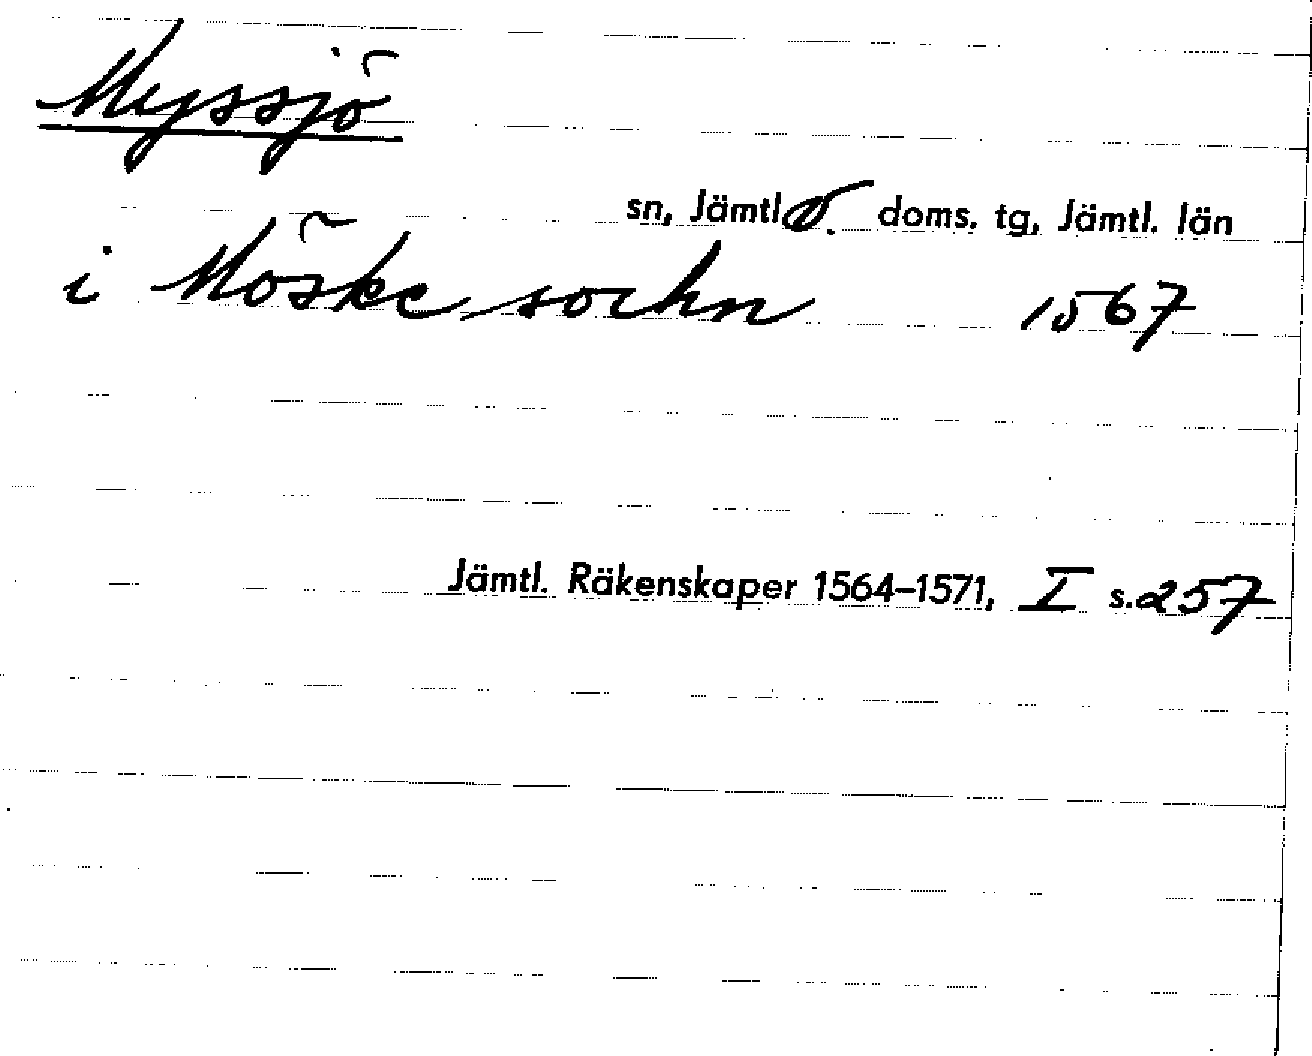 Myssjö
sn, Jämtl. v. doms. tg, Jämtl. län
i Möske sochn 1567
Jämtl. Räkenskaper 1564–1571, I s. 257